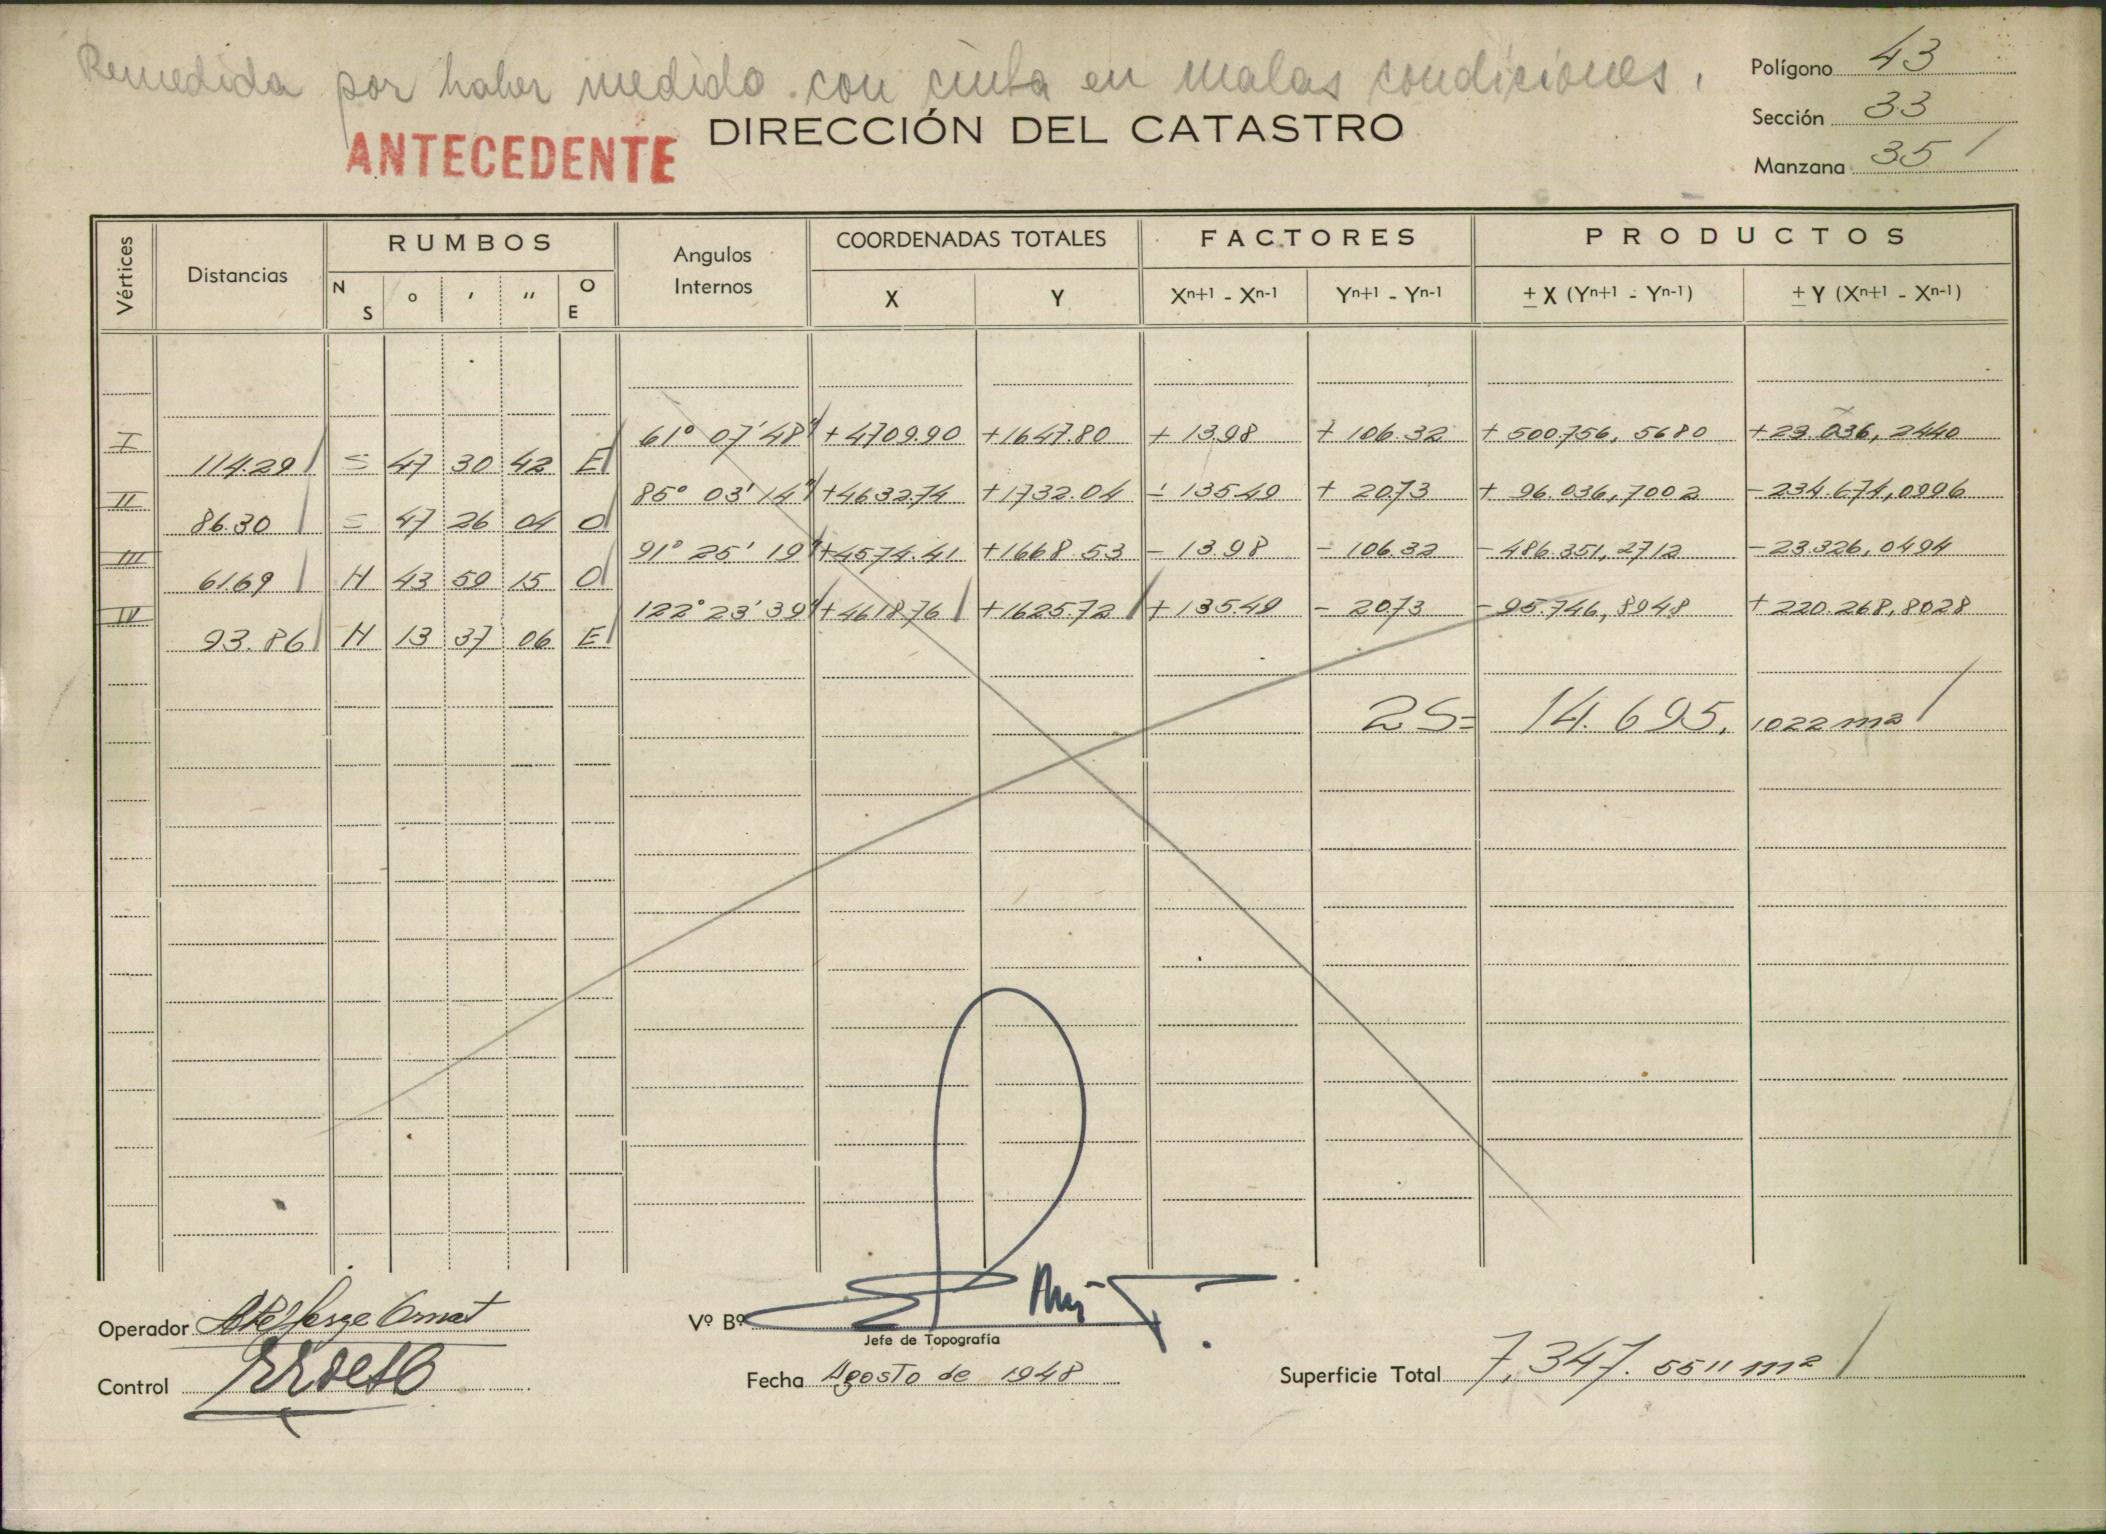 Remedida por haber medido con cinta en malas condiciones.
Polígono 43
Sección 33
Manzana 35
ANTECEDENTE
DIRECCIÓN DEL CATASTRO
Vértices Distancias RUMBOS Angulos Internos COORDENADAS TOTALES FACTORES PRODUCTOS
N S o ' '' O E X Y Xn+1 - Xn-1 Yn+1 - Yn-1 ± X (Yn+1 - Yn-1) ± Y (Xn+1 - Xn-1)
I 61° 07' 48" +4709.90 +1647.80 + 13.98 + 106.32 + 500.756,5680 +23.036,2440
114.29 S 47 30 42 E
II 85° 03' 14" +4632.74 +1732.04 - 135.49 + 20.73 + 96.036,7002 -234.674,0996
86.30 S 47 26 04 O
III 91° 25' 19" +4574.41 +1668.53 - 13.98 - 106.32 - 486.351,2712 -23.326,0494
61.69 N 43 59 15 O
IV 122° 23' 39" +4618.76 +1625.72 + 135.49 - 20.73 - 95.746,8948 + 220.268,8028
93.86 N 13 37 06 E
2S= 14.695,1022 m2
Operador
Control
Vº Bº
Jefe de Topografía
Fecha Agosto de 1948
Superficie Total 7,347.5511 m2